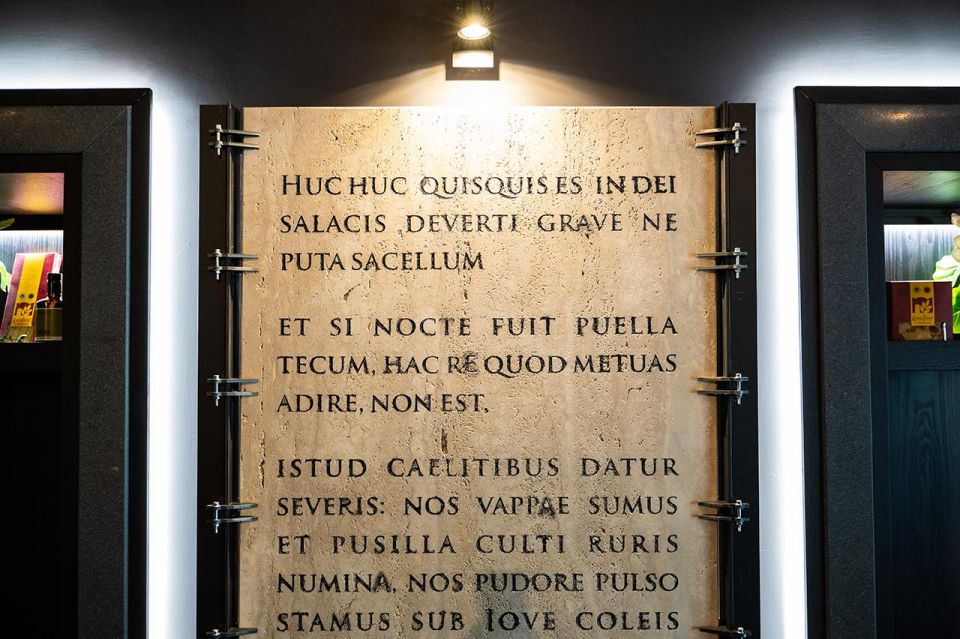 HUC HUC QUISQUIS ES IN DEI
SALACIS DEVERTI GRAVE NE
PUTA SACELLUM
ET SI NOCTE FUIT PUELLA
TECUM, HAC RE QUOD METUAS
ADIRE, NON EST.
ISTUD CAELITIBUS DATUR
SEVERIS: NOS VAPPAE SUMUS
ET PUSILLA CULTI RURIS
NUMINA, NOS PUDORE PULSO
STAMUS SUB IOVE COLEIS